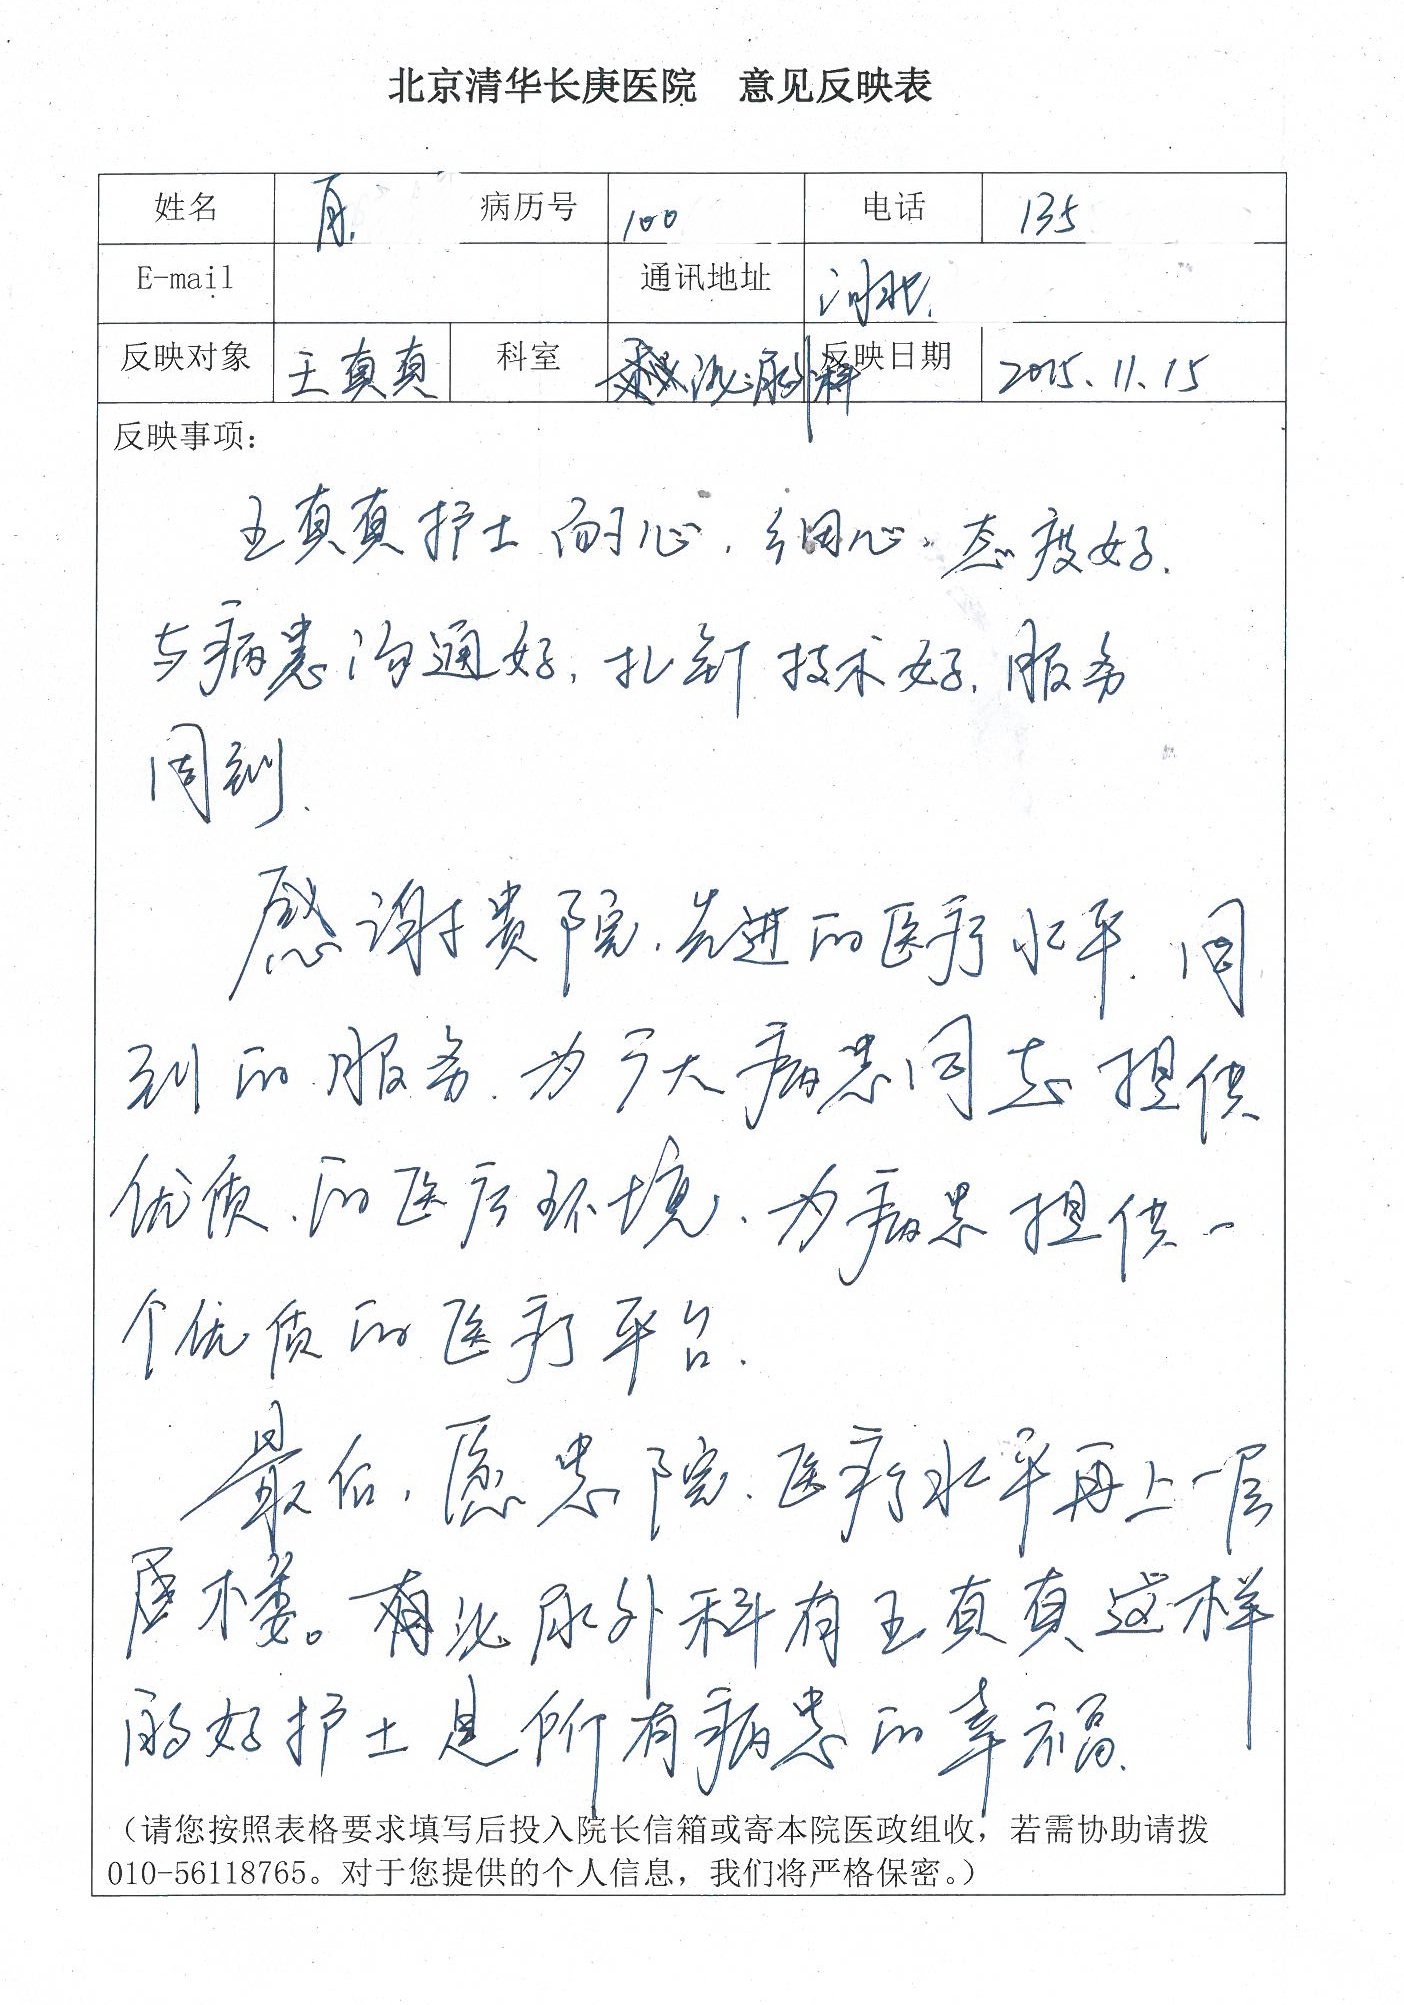 北京清华长庚医院 意见反映表
姓名 病历号 100 电话 135
E-mail 通讯地址 河北.
反映对象 王真真 科室 泌尿外科 反映日期 2015.11.15
反映事项：
王真真护士耐心，细心、态度好.
与病患沟通好，扎针技术好，服务
周到.
感谢贵院，先进的医疗水平，周
到的服务，为广大病患同志提供
优质、的医疗环境、为病患提供一
个优质的医疗平台.
最后，愿贵院、医疗水平再上一层
层楼。有泌尿外科有王真真这样
的好护士是所有病患的幸福.
（请您按照表格要求填写后投入院长信箱或寄本院医政组收，若需协助请拨
010-56118765。对于您提供的个人信息，我们将严格保密。）